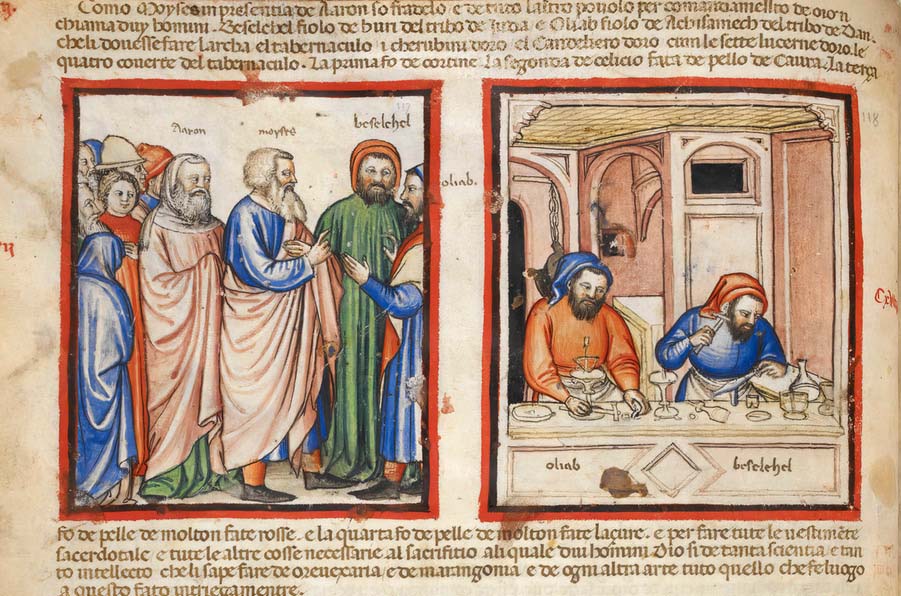 Como Moyses in presentia de Aaron so fradelo e de tuto laltro povolo per comandamento de dio n
chiama duy homini. Beselehel fiolo de huri del tribo de Iuda e Oliab fiolo de Achisamech del tribo de Dan.
che li dovesse fare larcha el tabernaculo i cherubini doro el Candeliero doro cum le sette lucerne doro. le
quatro coverte del tabernaculo. La prima fo de cortine. La segonda de celicio fata de pello de Caura. La terza
117
118
Aaron
moyses
beselehel
oliab.
oliab
beselehel
fo de pelle de molton fate rosse. e la quarta fo de pelle de molton fate laçure. e per fare tute le vestimēte
sacerdotale e tute le altre cosse necessarie al sacrifitio ali quale dui homini Dio si de tanta scientia e tan
to intelleto che li sape fare de orevexaria e de marangonia e de ogni altra arte tuto quello che fe luogo
a questo fato intriegamentre.